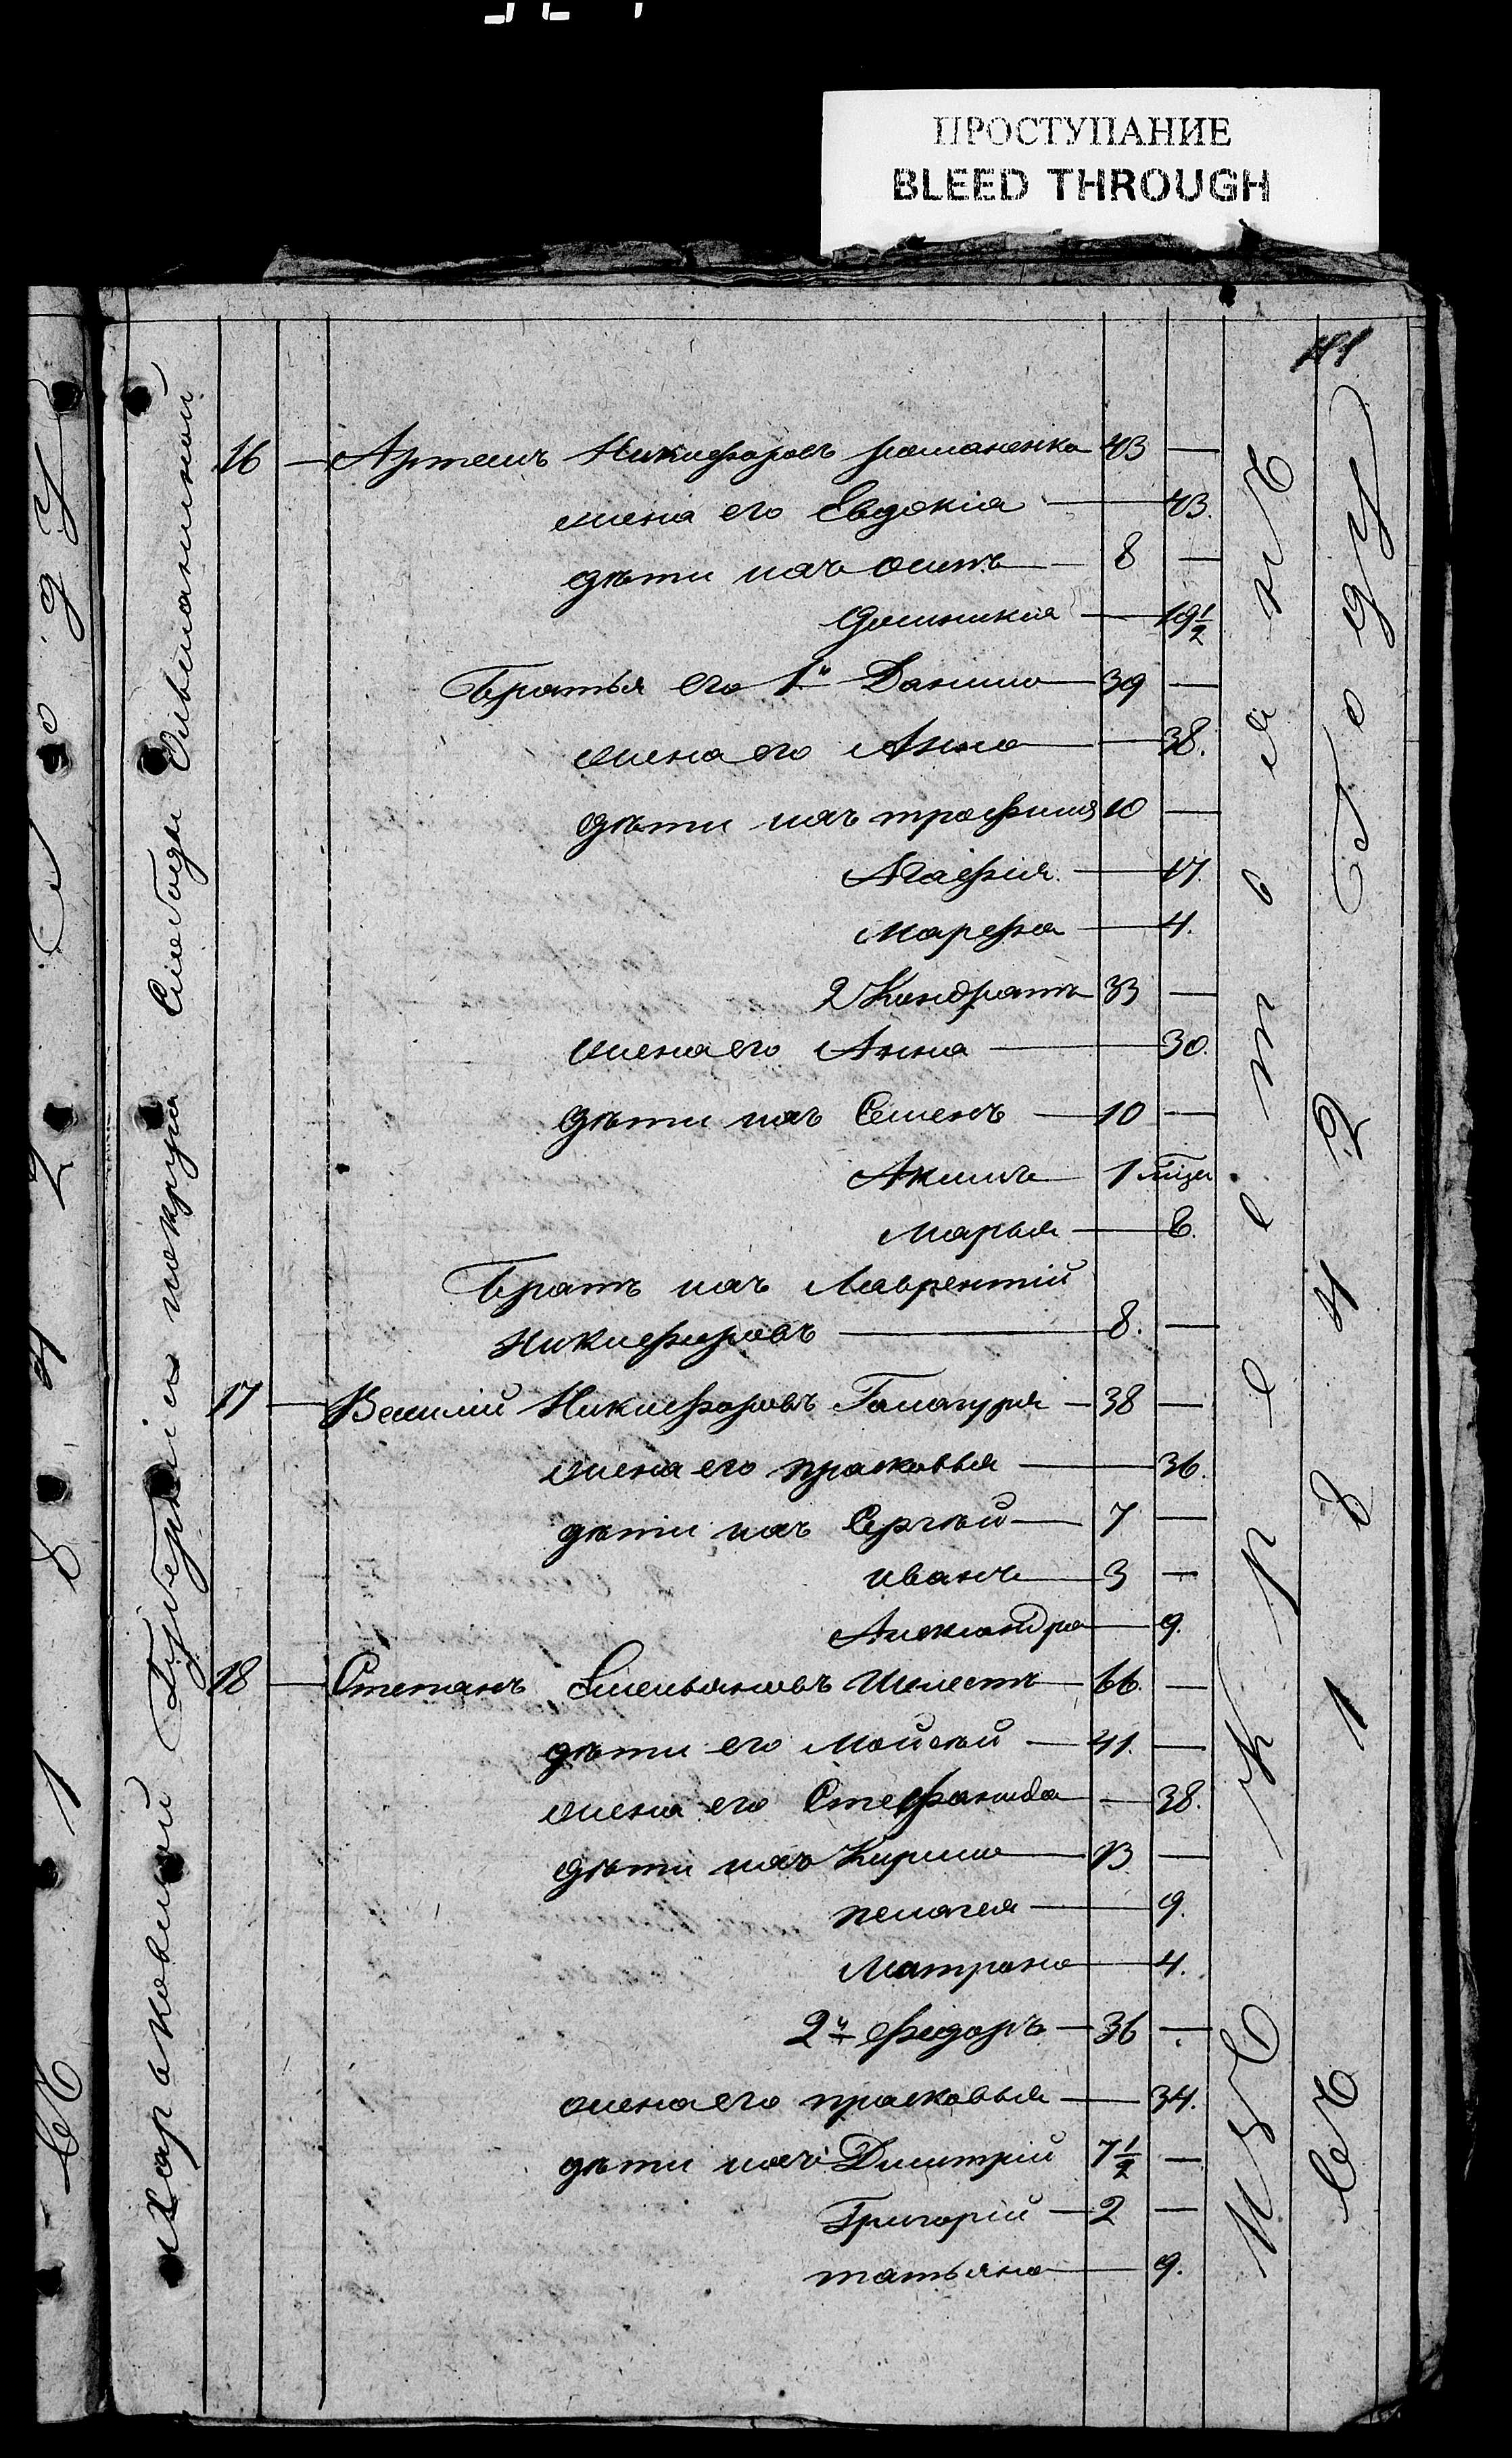 ПРОСТУПАНИЕ
BLEED THROUGH
16 — Артемъ Никифоровъ романенко 43 —
жена его Евдокія — 43.
дѣти ихъ осипъ — 8 —
Домникия — 19 1/2
Братья его 1й Данило — 39 —
жена его Анна — 38.
дѣти ихъ трофимъ 10 —
Агафія — 17.
Марфа — 4.
2 Кондратъ 33 —
жена его Анна — 30.
дѣти ихъ Семенъ — 10 —
Акимъ — 1
Марья — 6.
Братъ ихъ Лаврентій
Никифоровъ — 8. —
17 — Василій Никифоровъ — 38 —
жена его прасковья — 36.
дѣти ихъ Сергѣй — 7 —
иванъ — 3 —
Александра — 9.
18 — Степанъ Емельяновъ Шелестъ — 66. —
дѣти его Мойсѣй — 41. —
жена его Стефанида — 38.
дѣти ихъ Кирило — 13 —
пелагея — 9.
Матрона — 4.
2й федоръ — 36 —
жена его прасковья — 34.
дѣти ихъ Дмитрій 7 1/2 —
Григорій — 2 —
татьяна — 9.
Харьковской Губерніи и округа Слободы Ольшанской
Изъ Крестьянъ
въ 1842 Году
въ 1842 Году